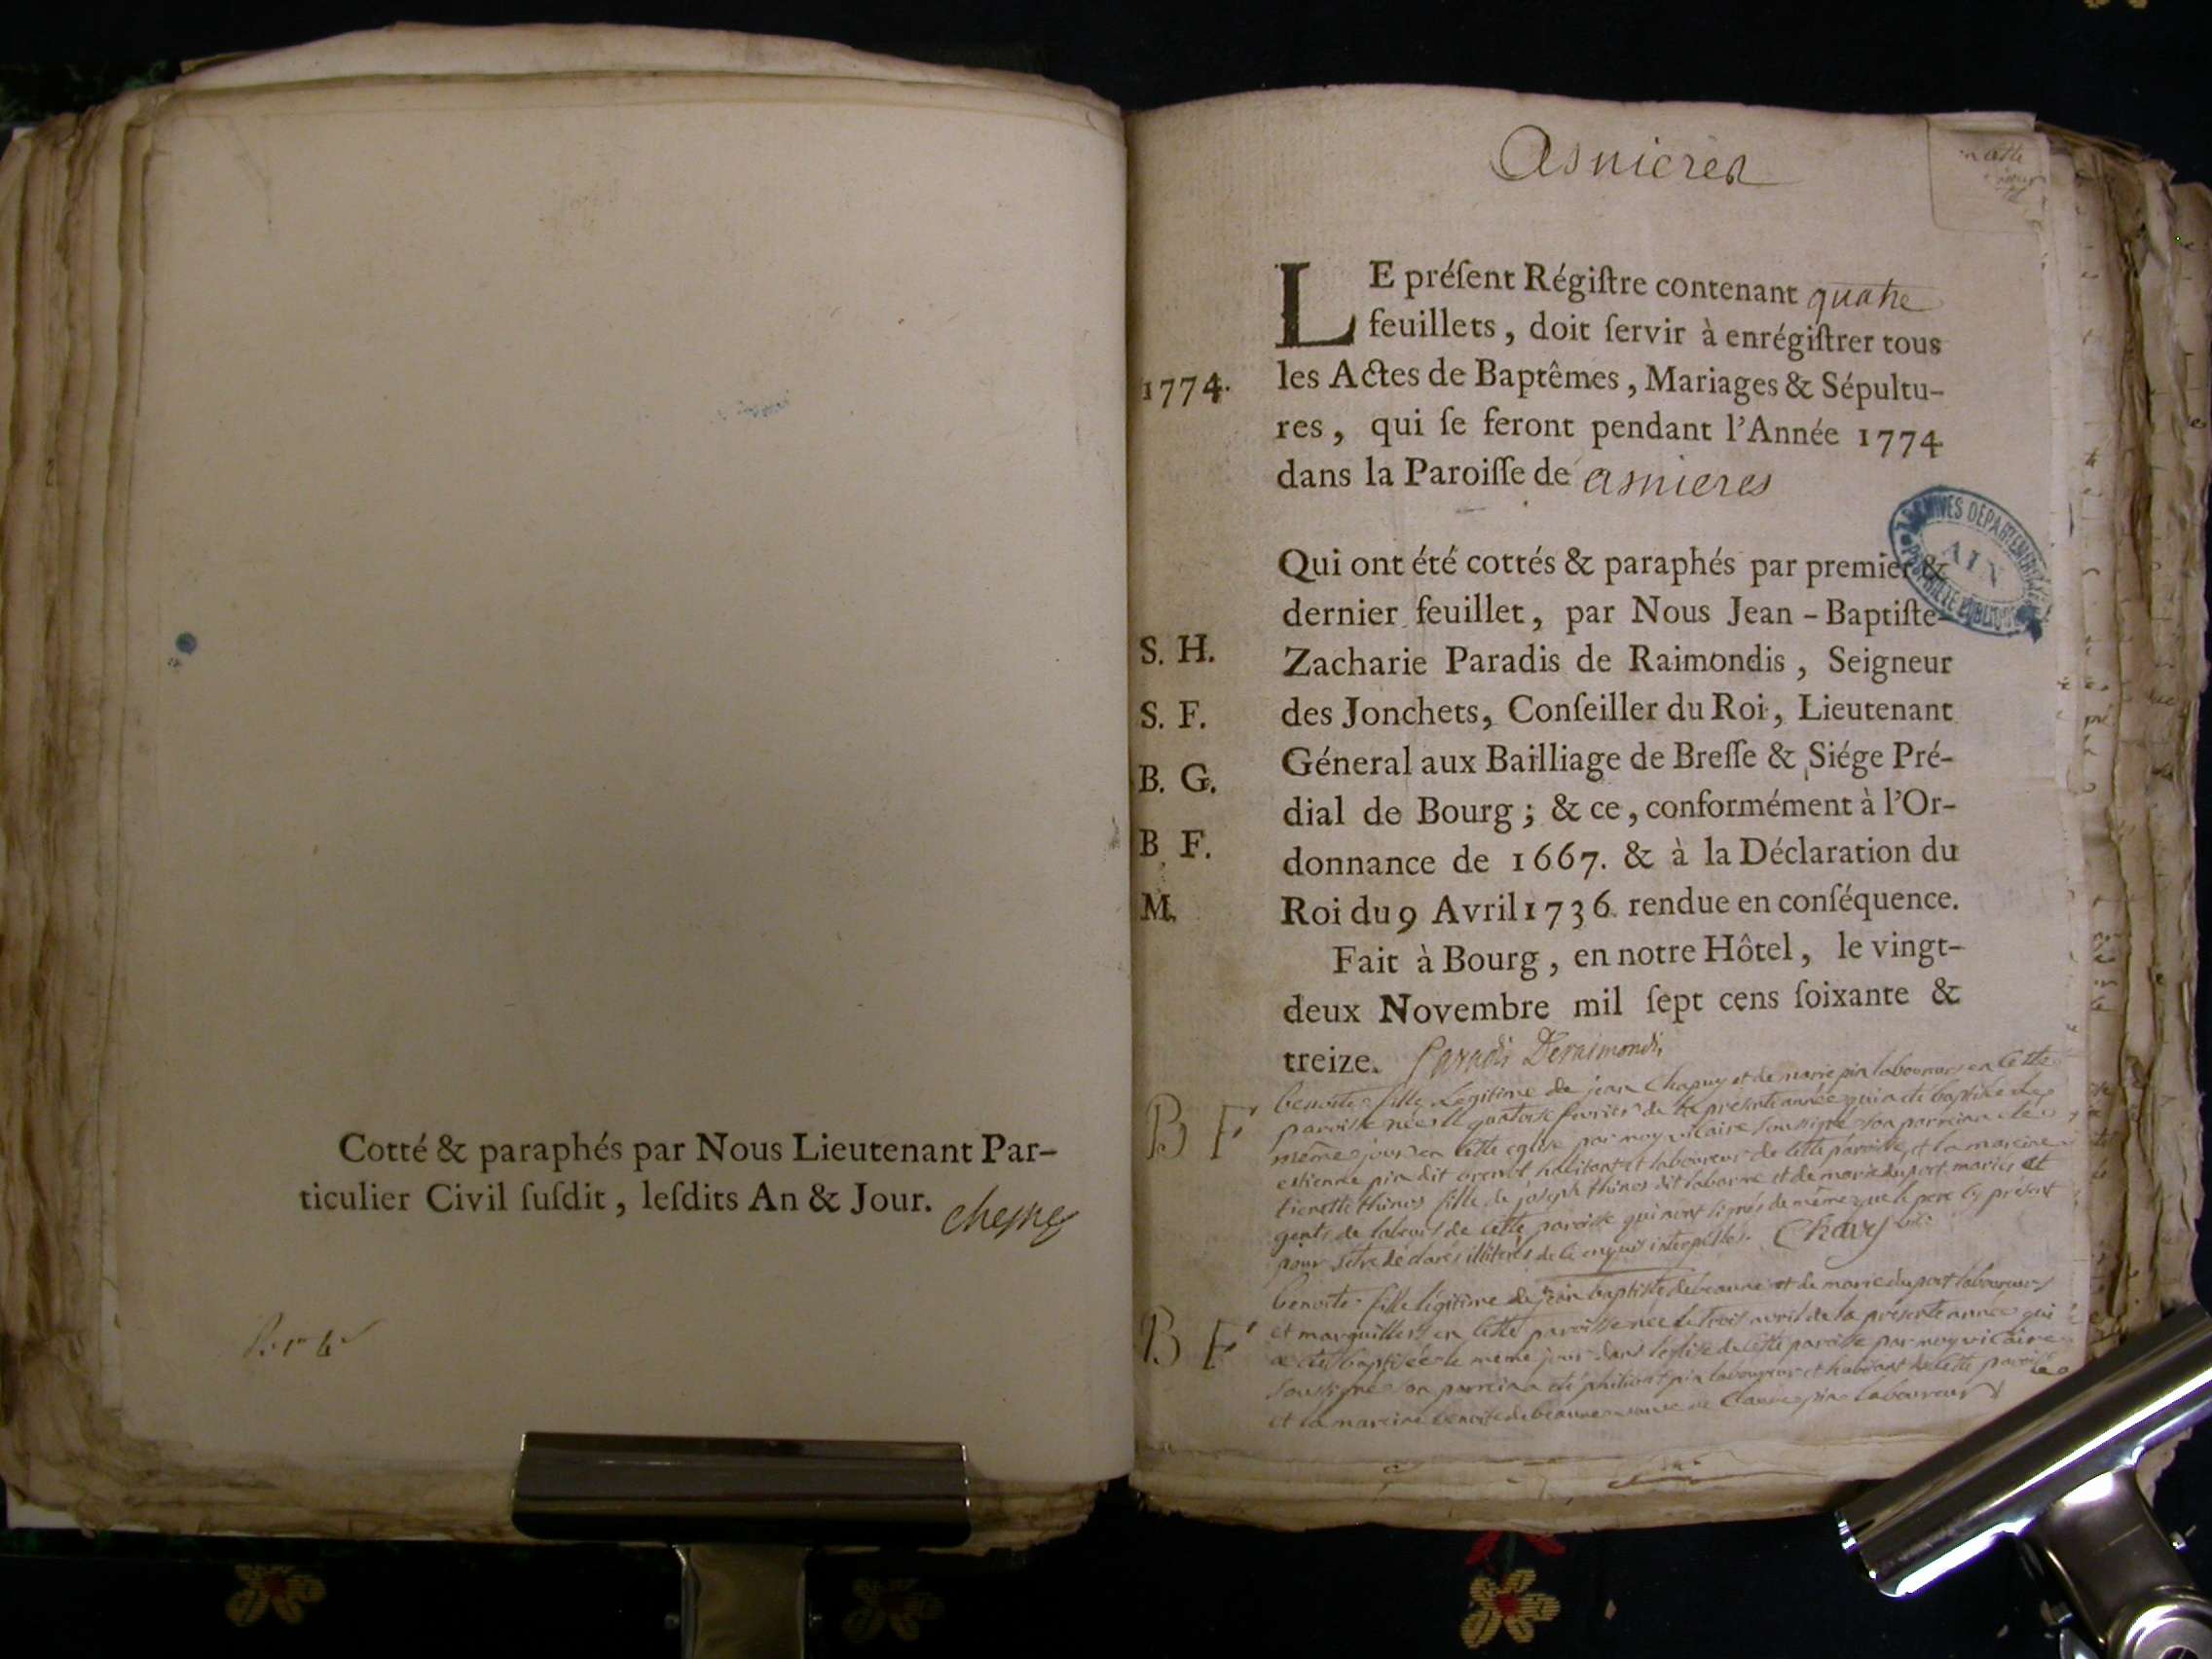 Cotté & paraphés par Nous Lieutenant Par-
ticulier Civil ſuſdit, leſdits An & Jour.
Asnieres
LE préſent Régiſtre contenant quatre
feuillets, doit ſervir à enrégiſtrer tous
1774. les Actes de Baptêmes, Mariages & Sépultu-
res, qui ſe feront pendant l'Année 1774
dans la Paroiſſe de asnieres
ARCHIVES DEPARTEMENTALES
AIN
PROPRIETE PUBLIQUE
Qui ont été cottés & paraphés par premier &
dernier feuillet, par Nous Jean-Baptiſte-
S. H. Zacharie Paradis de Raimondis, Seigneur
S. F. des Jonchets, Conſeiller du Roi, Lieutenant
B. G. Géneral aux Bailliage de Breſſe & Siége Pré-
dial de Bourg; & ce, conformément à l'Or-
B F. donnance de 1667. & à la Déclaration du
M. Roi du 9 Avril 1736. rendue en conſéquence.
Fait à Bourg, en notre Hôtel, le vingt-
deux Novembre mil ſept cens ſoixante &
treize. Paradis Deraimondis
B F benoite fille legitime de jean Chapuy et de marie pin laboureurs en cette
paroisse née le quatorse fevrier de la présente année qui a été baptisée le
même jour en cette eglise par moy vicaire soussigné son parrein a été
estienne pin dit habitant et laboureur de cette paroisse et la mareine
fille de joseph thinos dit et de marie duport mariés et
gents de labeurs de cette paroisse qui n'ont signés de même que le pere présent
pour s'etre déclarés illiterés de ce enquis interpellés. Chavy vic.
B F benoite fille légitime de jean baptiste debeaune et de marie duport laboureurs
et marguilliers en cette paroisse née le trois avril de la présente année qui
a été baptisée le même jour dans l'eglise de cette paroisse par moy vicaire
soussigné son parrein a été philibert pin laboureur et habitant de cette paroisse
et la mareine benoite debeaune veuve de Claude pin laboureur